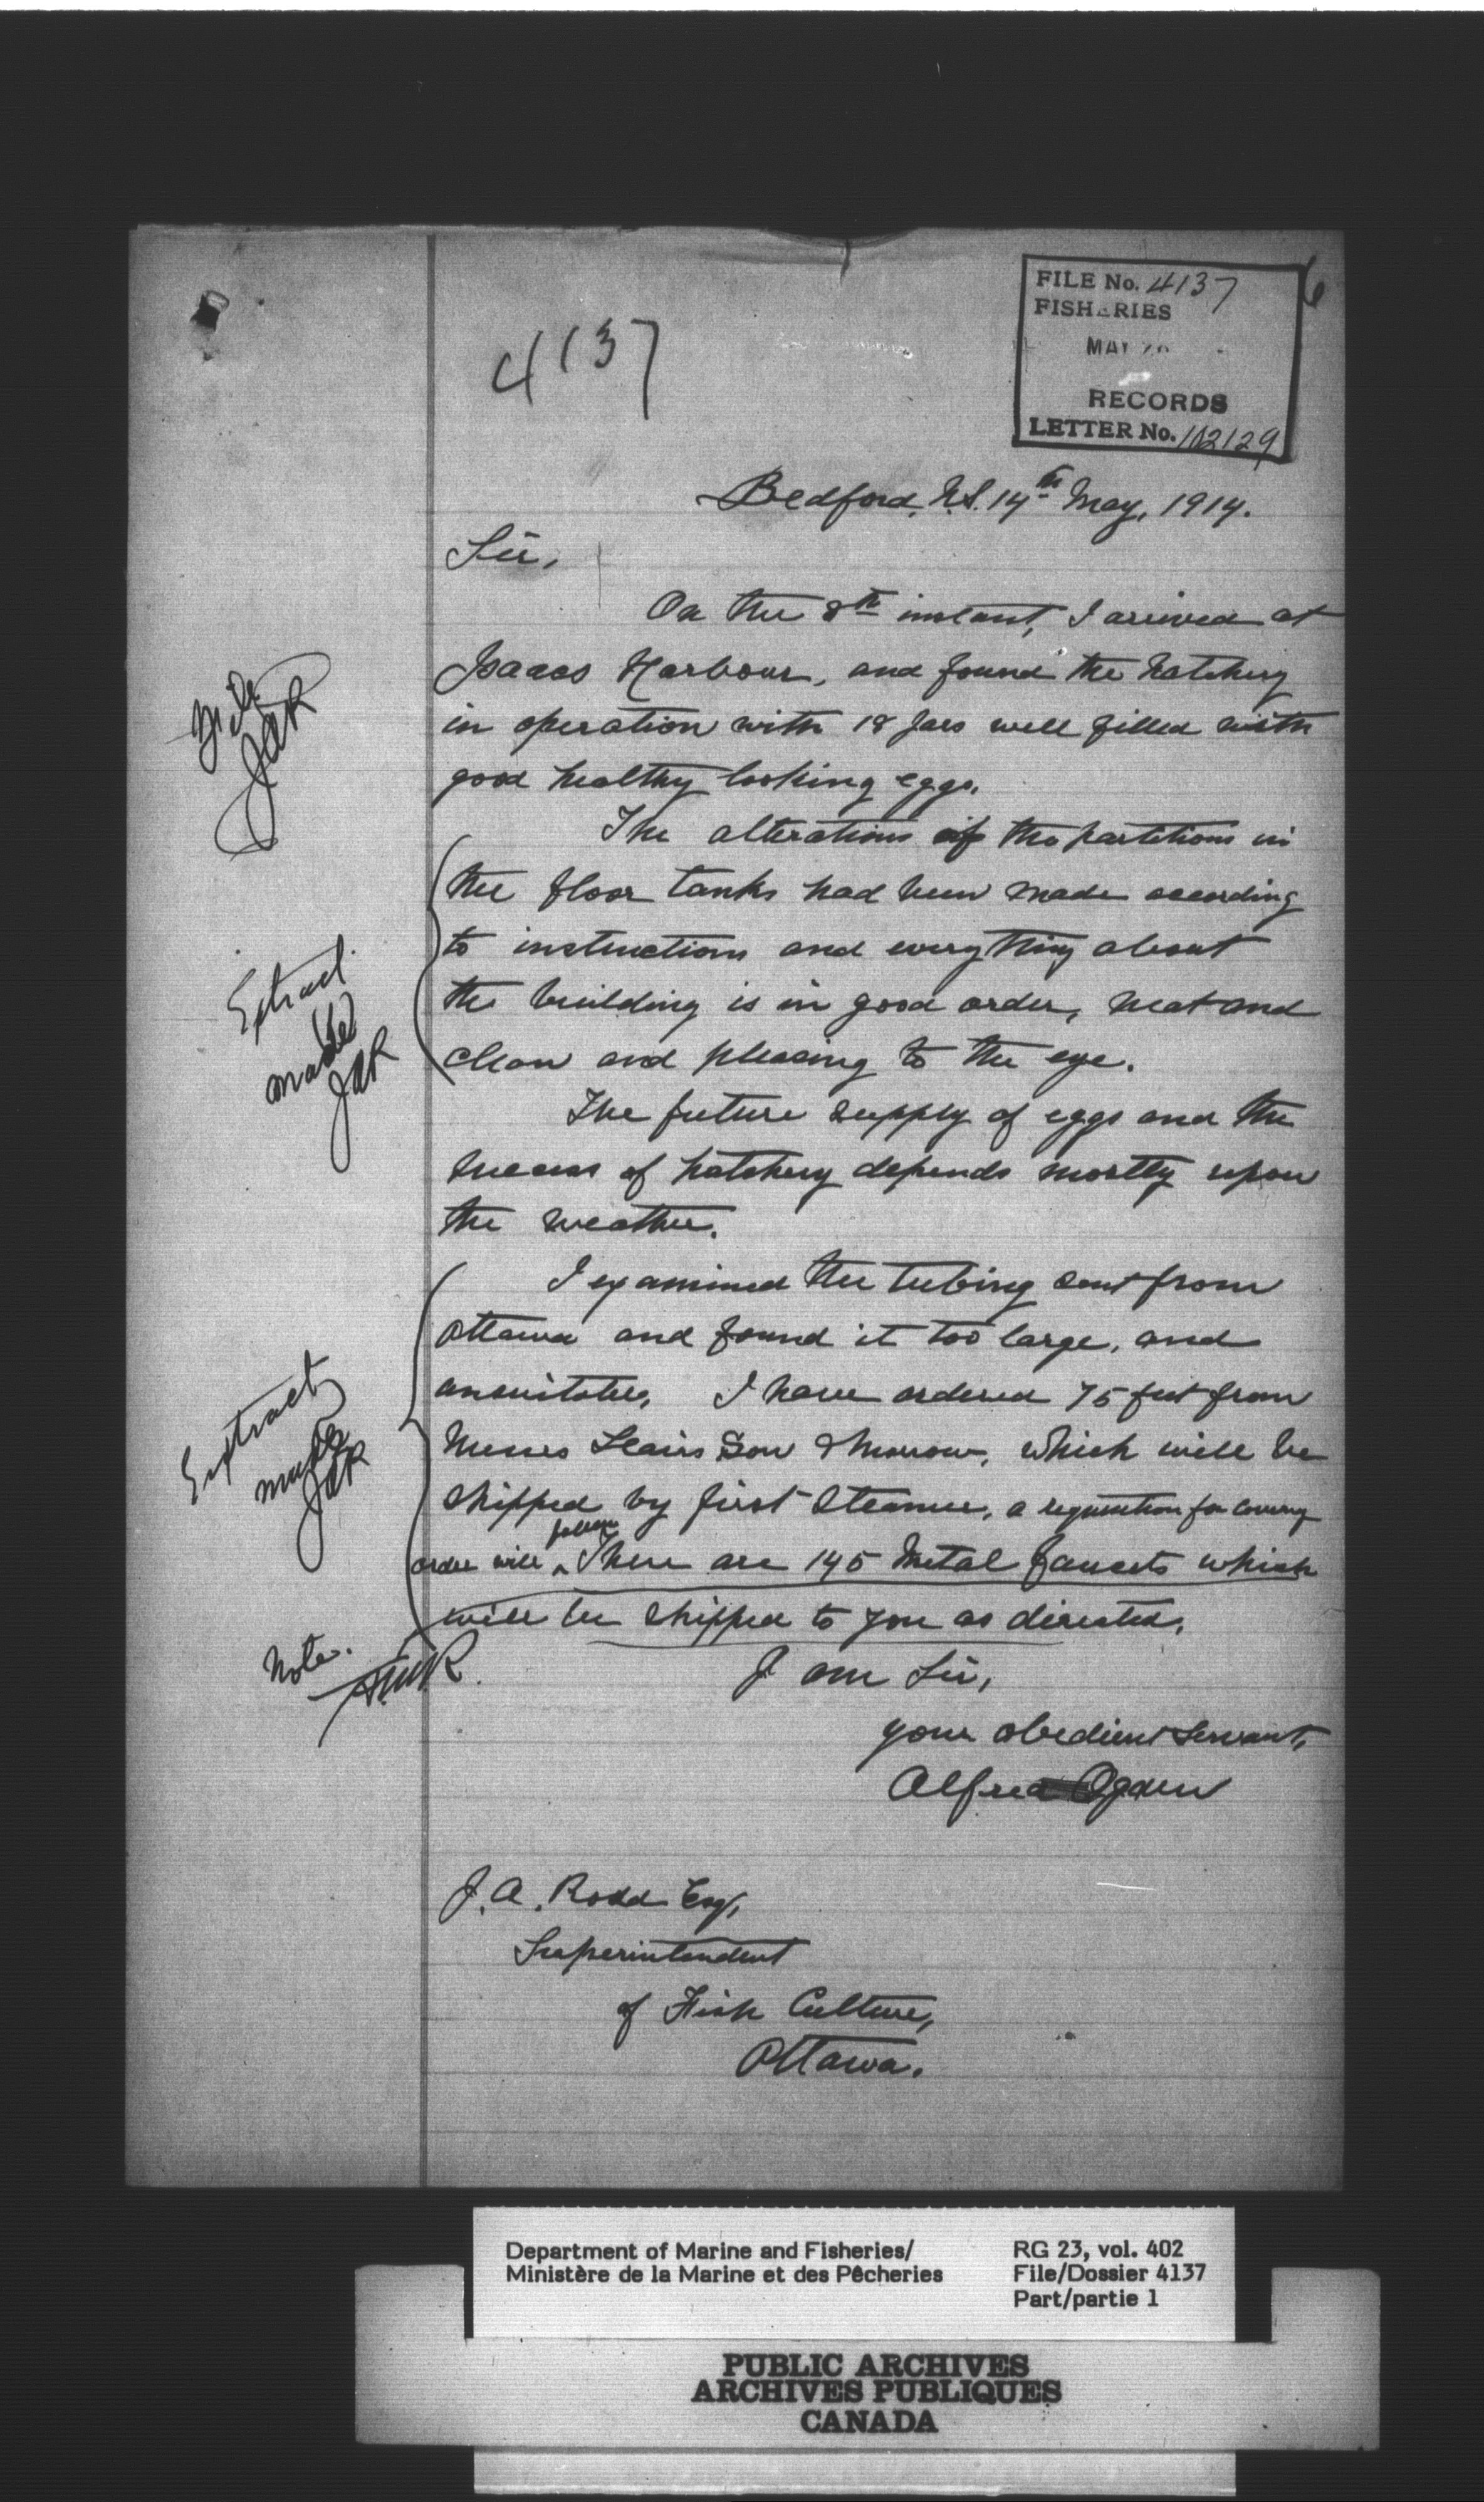 FILE No. 4137
FISHERIES
MAY
RECORDS
LETTER No. 102129
6
4137
Bedford, N.S. 14th May, 1914.
Sir,
On the 8th instant, I arrived at
Isaacs Harbour, and found the hatchery
in operation with 18 jars well filled with
good healthy looking eggs.
The alterations of the partitions in
the floor tanks had been made according
to instructions and everything about
the building is in good order, neat and
clean and pleasing to the eye.
The future supply of eggs and the
success of hatchery depends mostly upon
the weather.
I examined the tubing sent from
Ottawa and found it too large, and
unsuitable, I have ordered 75 feet from
Messrs Stairs Son & Morrow, which will be
shipped by first steamer, a requisition for covering
order will follow There are 145 Metal faucets which
will be shipped to you as directed.
I am Sir,
your obedient servant,
Alfred Ogden
J.A. Rodd Esq,
Superintendent
of Fish Culture,
Ottawa.
File
JAR
Extract
made
JAR
Extract
made
JAR
Note.
Department of Marine and Fisheries/
Ministère de la Marine et des Pêcheries
RG 23, vol. 402
File/Dossier 4137
Part/partie 1
PUBLIC ARCHIVES
ARCHIVES PUBLIQUES
CANADA